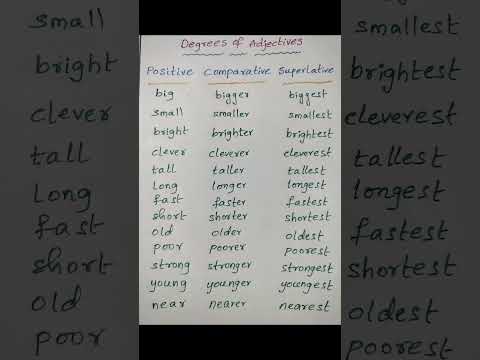 Degrees of Adjectives
Positive Comparative Superlative
big bigger biggest
small smaller smallest
bright brighter brightest
clever cleverer cleverest
tall taller tallest
Long longer longest
fast faster fastest
short shorter shortest
old older oldest
poor poorer poorest
strong stronger strongest
young younger youngest
near nearer nearest
small smallest
bright brightest
clever cleverest
tall tallest
Long longest
fast fastest
short shortest
old oldest
poor poorest